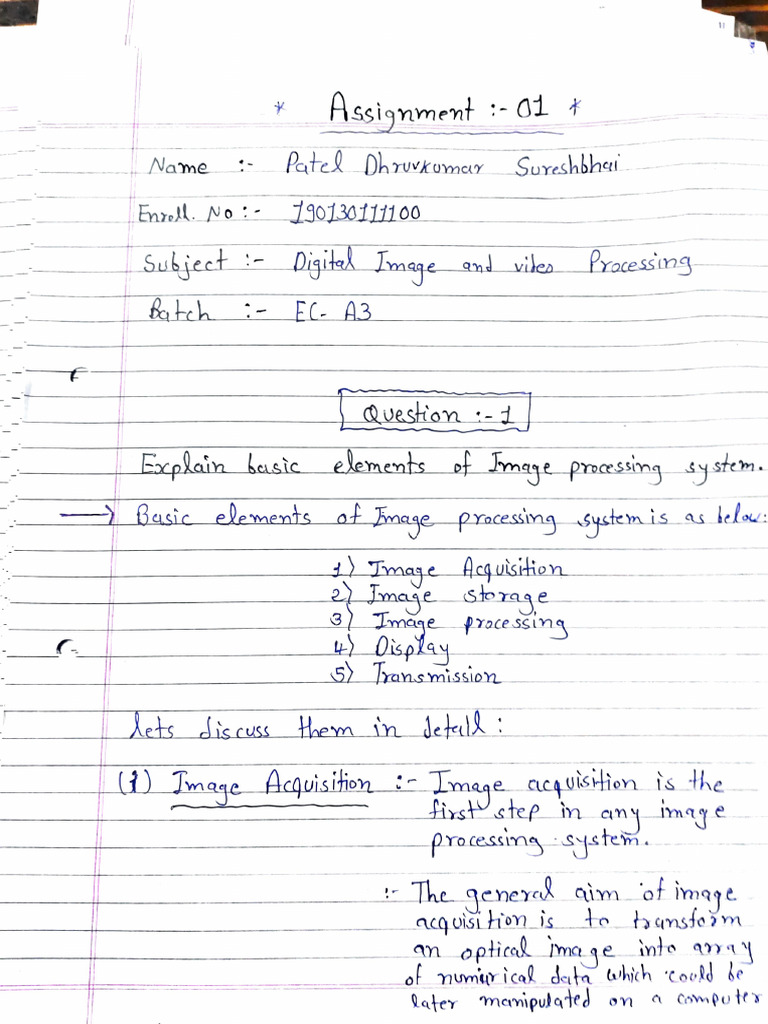 * Assignment :- 01 *
Name :- Patel Dhruvkumar Sureshbhai
Enroll. No :- 190130111100
Subject :- Digital Image and video Processing
Batch :- EC- A3
Question :- 1
Explain basic elements of Image processing system.
→ Basic elements of Image processing system is as below:
1) Image Acquisition
2) Image storage
3) Image processing
4) Display
5) Transmission
lets discuss them in detail :
(1) Image Acquisition :- Image acquisition is the
first step in any image
processing system.
:- The general aim of image
acquisition is to transform
an optical image into array
of numirical data which could be
later manipulated on a computer